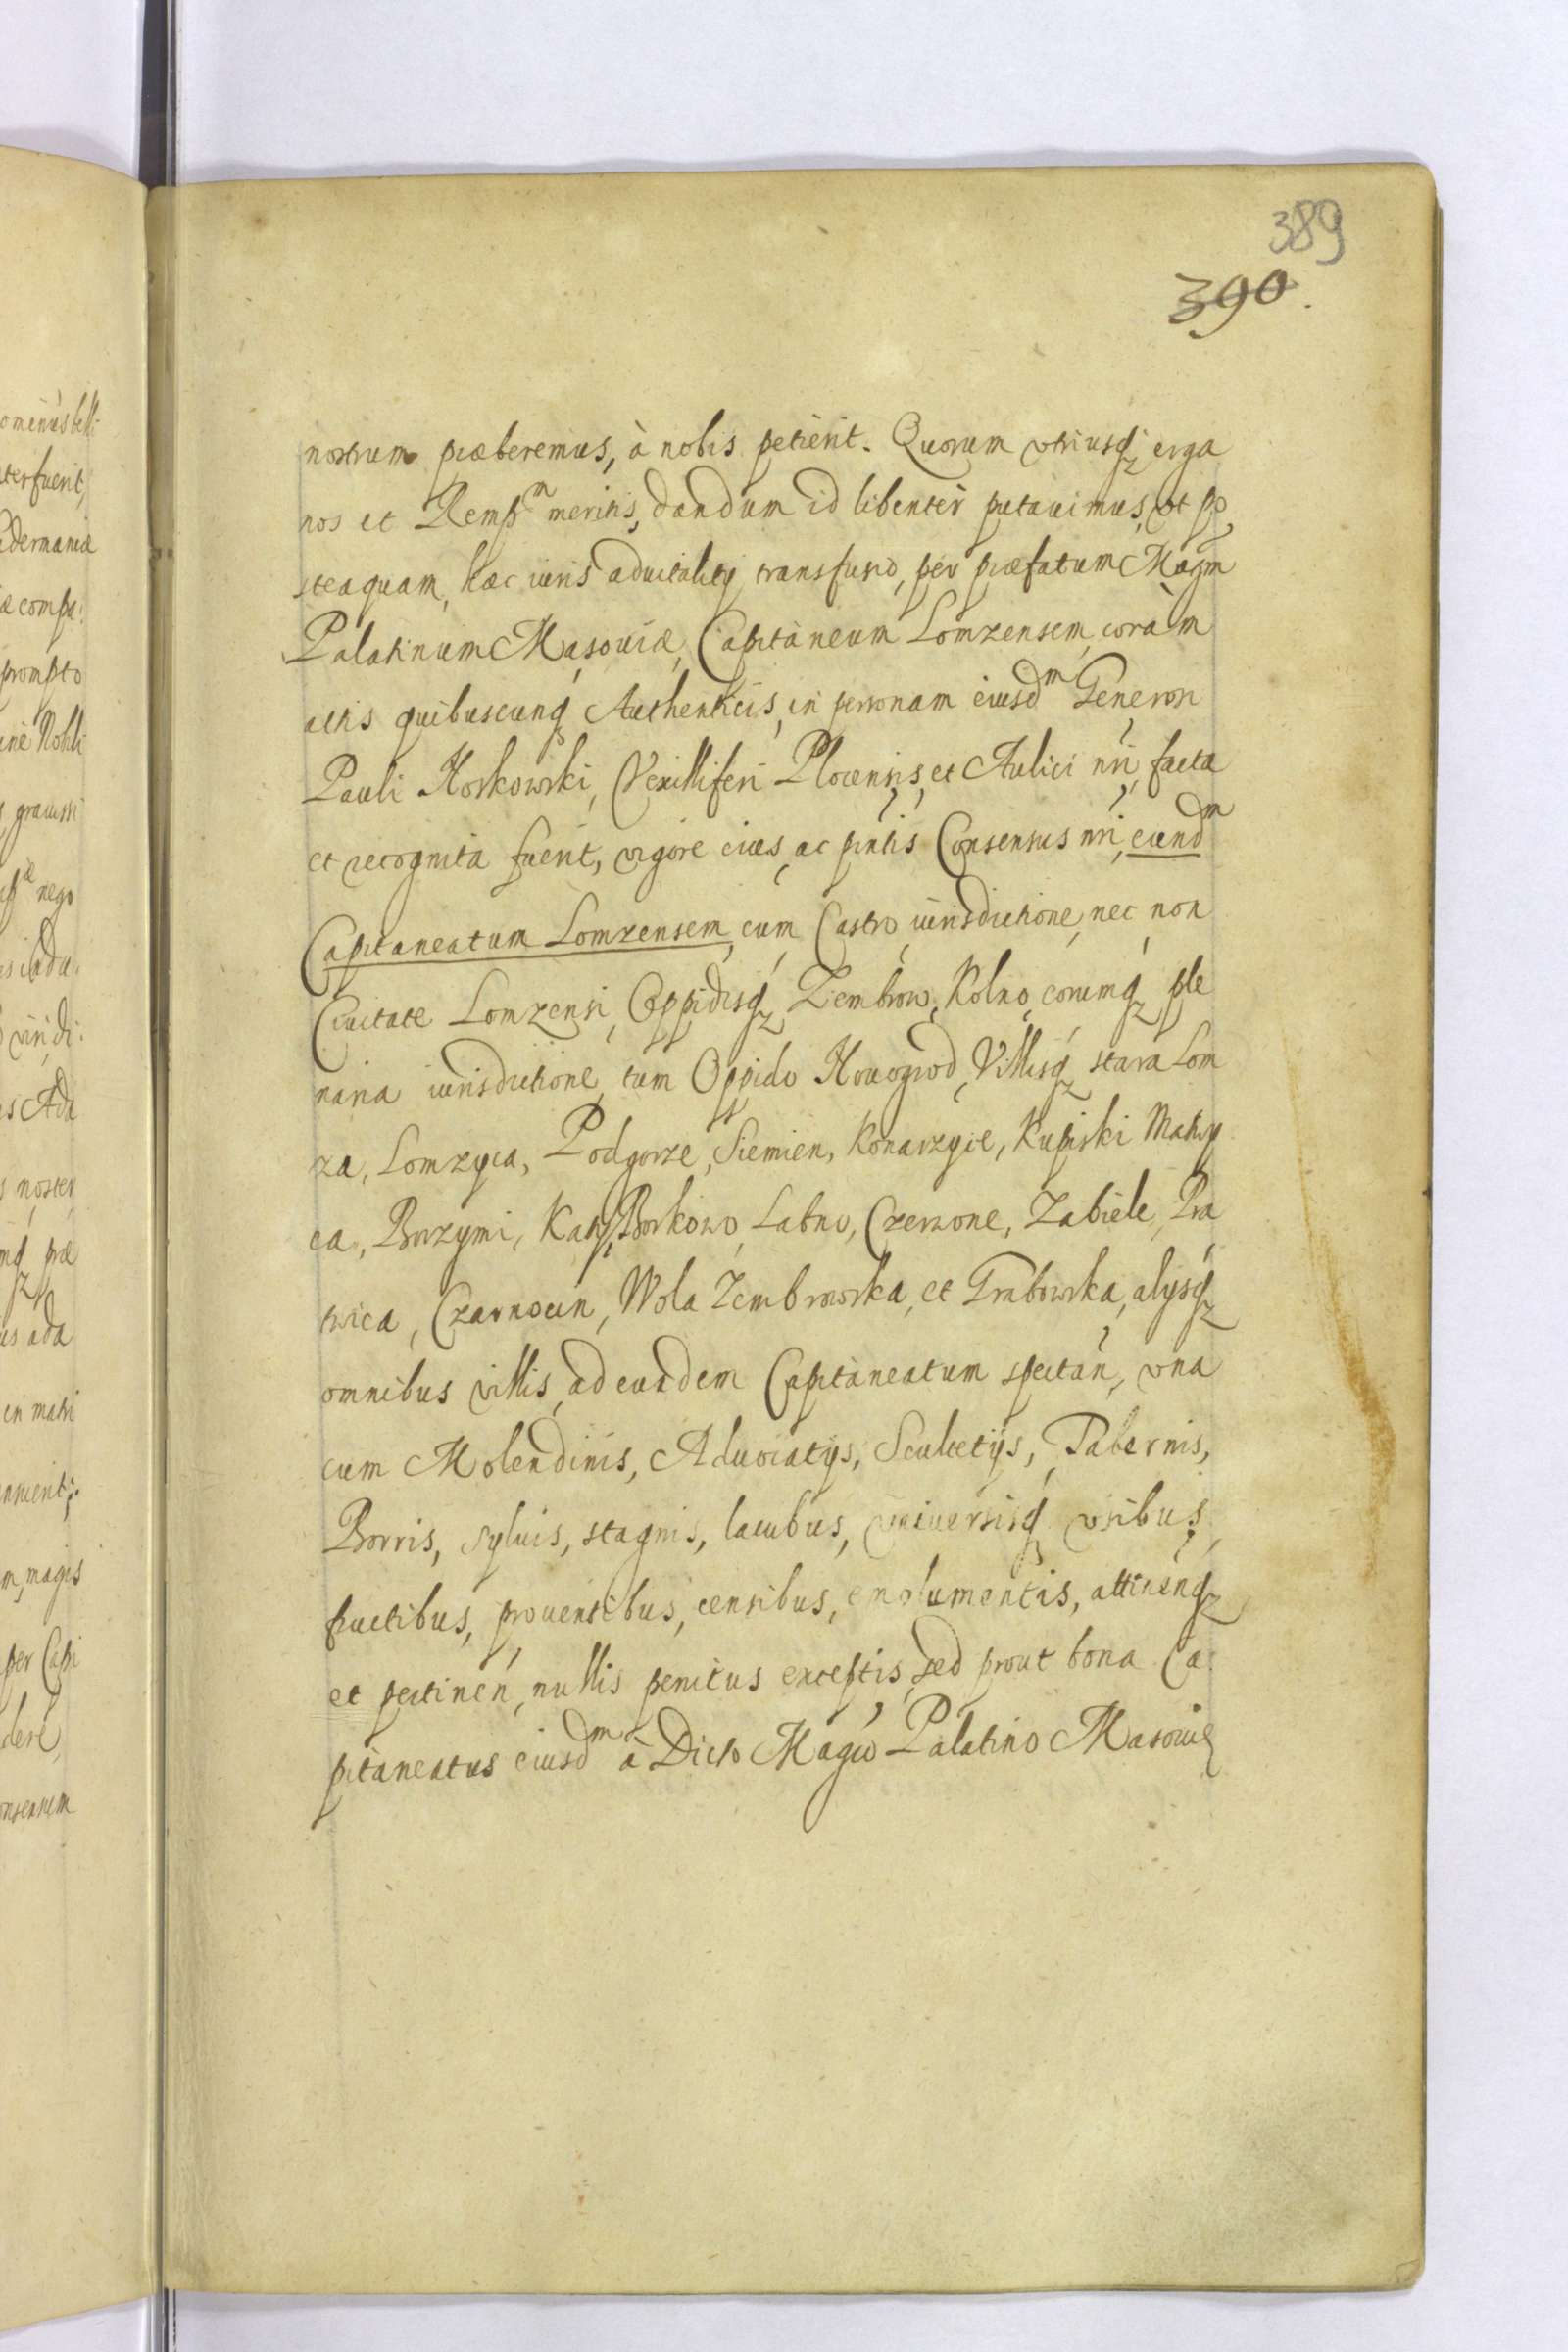 389
390.
nostrum præberemus, à nobis petierit. Quorum vtriusq; erga
nos et Remp^m meritis, dandum id libenter putauimus, vt po
steaquam, hæc iuris aduitalitij transfusio, per præfatum Magm
Palatinum Masouiæ, Capitaneum Lomzensem, coràm
actis quibuscunq Authenticis, in personam eiusd^m Generosi
Pauli Koskowski, Vexilliferi Plocensis, et Aulici nri, facta
et recognita fuerit, vigore eius, ac pntis Consensus nri, eund^m
Capitaneatum Lomzensem, cum Castro, iurisdictione, nec non
Ciuitate Lomzensi, Oppidisq; Zembrow, Kolno, eorumq; ple
naria iurisdictione, tum Oppido Nouogrod, Villisq; stara Lom
za, Lomzyca, Podgorze, Siemien, Konarzyce, Kupiski Matwy
ca, Borzymi, Katy, Borkowo, Labno, Czerwone, Zabiele, Pta
kwica, Czarnocin, Wola Zembrowska, et Grabowka, alijsq;
omnibus villis, ad eundem Capitaneatum spectan, vna
cum Molendinis, Aduocatijs, Scultetijs, Tabernis,
Borris, syluis, stagnis, lacubus, vniuersisq; vsibus,
fructibus, prouentibus, censibus, emolumentis, attinenq;
et pertinen, nullis penitus exceptis, sed prout bona Ca
pitaneatus eiusd^m à Dicto Magco Palatino Masouiæ
omeniùs bell:
terfuerit,
prompto
Nobili
nego
es Ada
noster
præ
in matri
m, magis
per Capi
dere,
onsensum